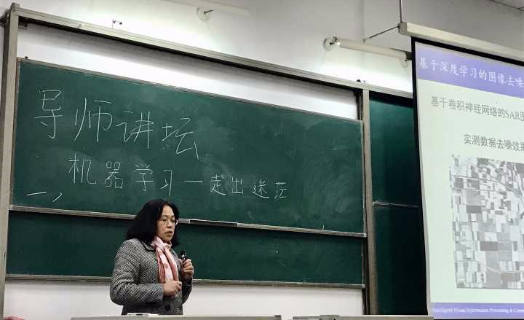 导师讲坛
机器学习一走出迷茫
一、
基于深度学习的图像去噪
基于卷积神经网络的SAR图
实测数据去噪效果